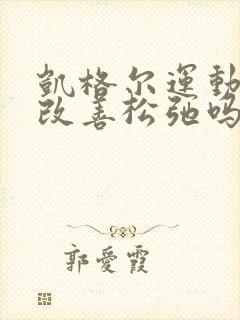 凱格尔運動
改善松弛吗
郭愛霞